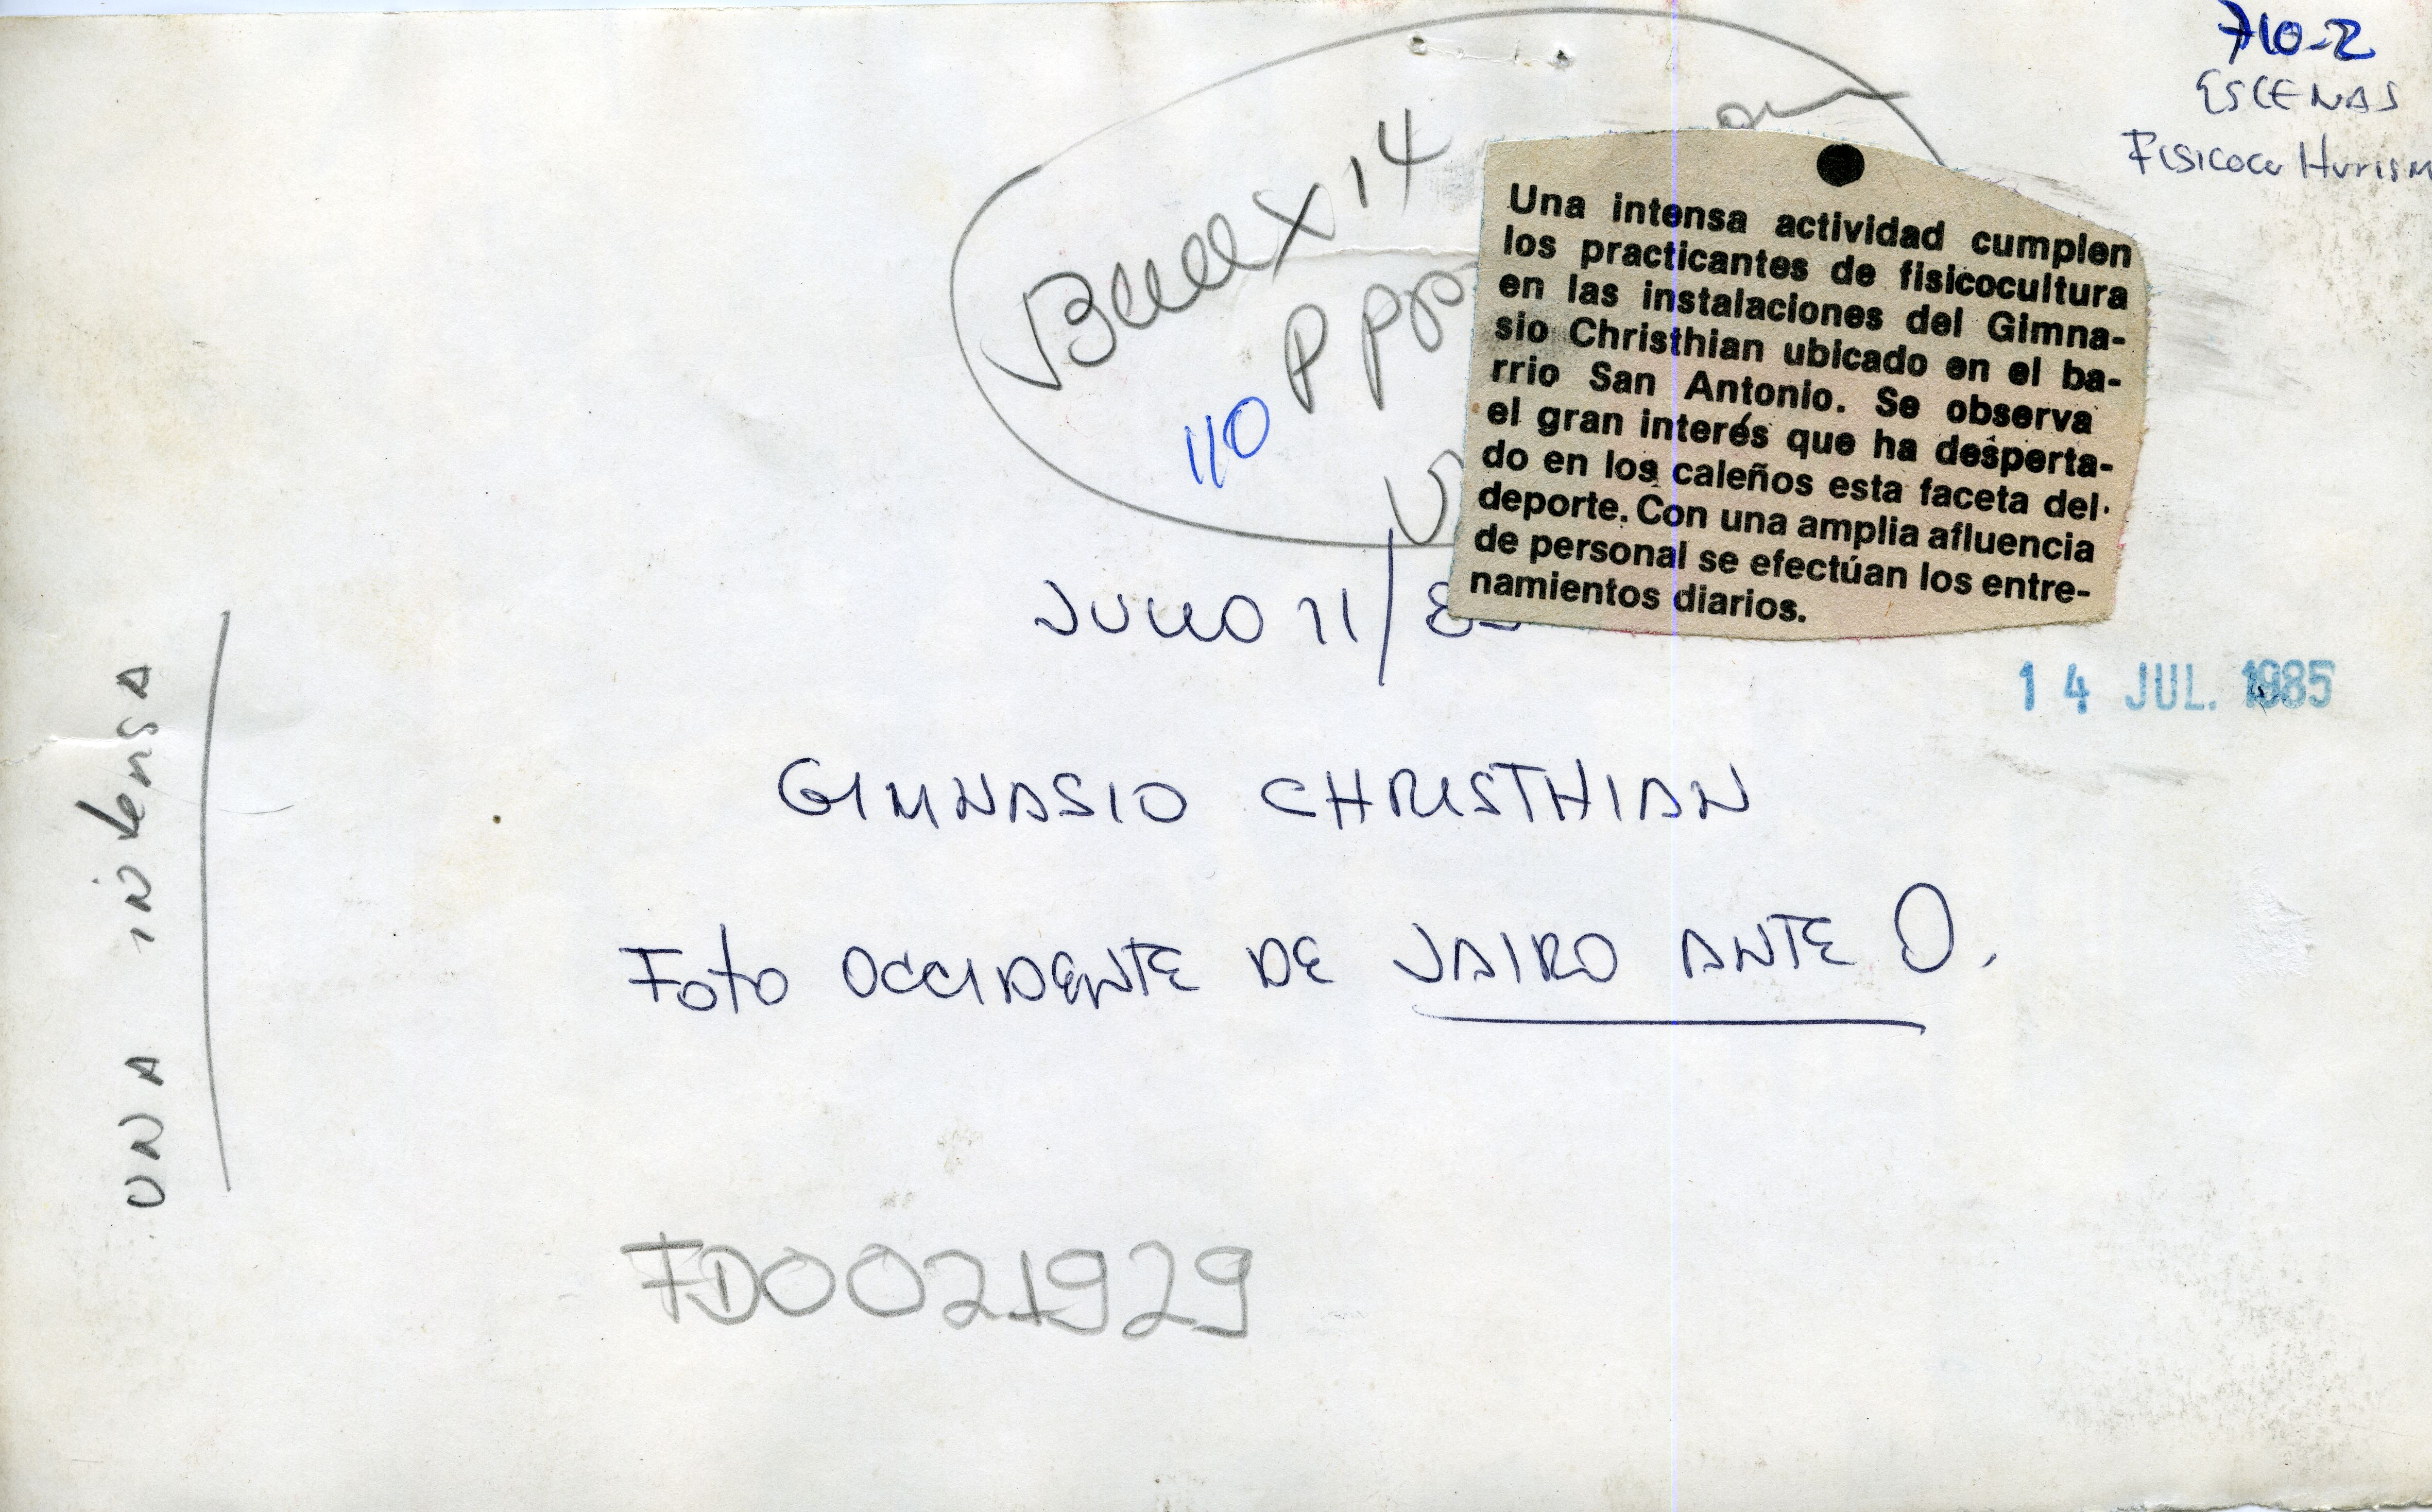 710-2
ESCENAS
Fisicoculturism
14
110
Una intensa actividad cumplen
los practicantes de fisicocultura
en las instalaciones del Gimna-
sio Christhian ubicado en el ba-
rrio San Antonio. Se observa
el gran interés que ha desperta-
do en los caleños esta faceta del
deporte. Con una amplia afluencia
de personal se efectúan los entre-
namientos diarios.
JULIO 11/8
14 JUL. 1985
GIMNASIO CHRISTHIAN
Foto OCCIDENTE DE JAIRO ANTE O.
UNA intensa
FD0021929